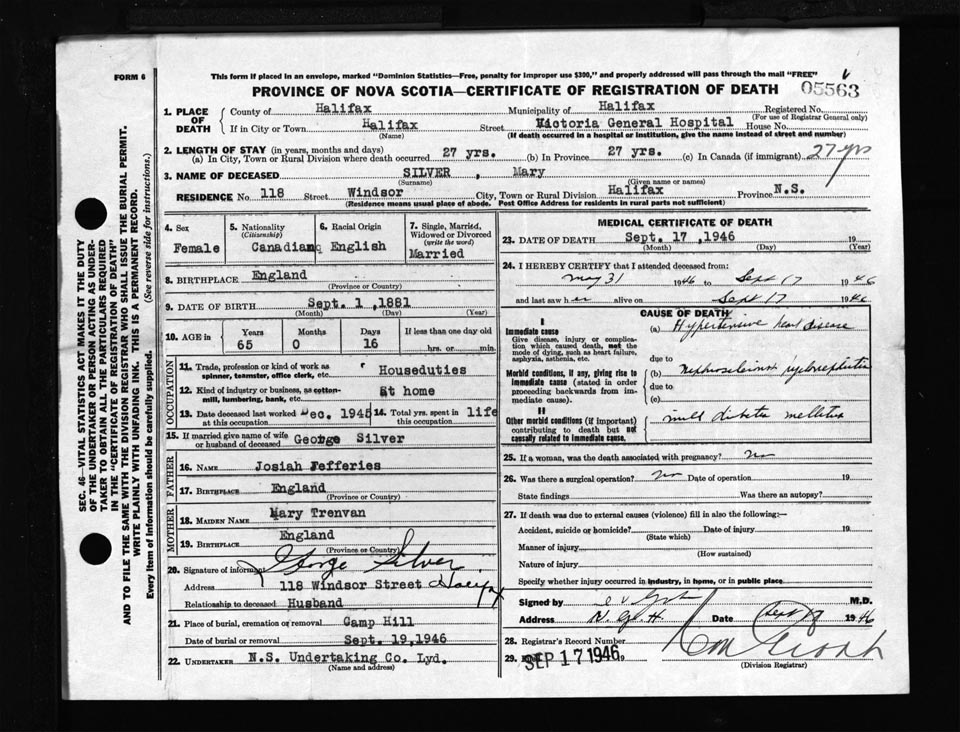 FORM 6
This form if placed in an envelope, marked "Dominion Statistics—Free, penalty for improper use $300," and properly addressed will pass through the mail "FREE"
PROVINCE OF NOVA SCOTIA—CERTIFICATE OF REGISTRATION OF DEATH
05563
1. PLACE OF DEATH
County of Halifax Municipality of Halifax Registered No.
(For use of Registrar General only)
If in City or Town Halifax Street Victoria General Hospital House No.
(Name) (If death occurred in a hospital or institution, give the name instead of street and number)
2. LENGTH OF STAY (in years, months and days)
(a) In City, Town or Rural Division where death occurred 27 yrs. (b) In Province 27 yrs. (c) In Canada (if immigrant) 27 yrs
3. NAME OF DECEASED SILVER , Mary
(Surname) (Given name or names)
RESIDENCE No 118 Street Windsor City, Town or Rural Division Halifax Province N.S.
(Residence means usual place of abode. Post Office Address for residents in rural parts not sufficient)
4. Sex
Female
5. Nationality
(Citizenship)
Canadian
6. Racial Origin
English
7. Single, Married, Widowed or Divorced
(write the word)
Married
8. BIRTHPLACE England
(Province or Country)
9. DATE OF BIRTH Sept. 1 ,1881
(Month) (Day) (Year)
10. AGE in
Years Months Days If less than one day old
65 0 16 hrs. or min.
OCCUPATION
11. Trade, profession or kind of work as spinner, teamster, office clerk, etc. Houseduties
12. Kind of industry or business, as cotton-mill, lumbering, bank, etc. At home
13. Date deceased last worked at this occupation Dec. 1945
14. Total yrs. spent in this occupation life
15. If married give name of wife or husband of deceased George Silver
FATHER
16. NAME Josiah Jefferies
17. BIRTHPLACE England
(Province or Country)
MOTHER
18. MAIDEN NAME Mary Trenvan
19. BIRTHPLACE England
(Province or Country)
20. Signature of informant George Silver
Address 118 Windsor Street Halifax
Relationship to deceased Husband
21. Place of burial, cremation or removal Camp Hill
Date of burial or removal Sept. 19,1946
22. UNDERTAKER N.S. Undertaking Co. Lyd.
(Name and address)
MEDICAL CERTIFICATE OF DEATH
23. DATE OF DEATH Sept. 17 ,1946 19
(Month) (Day) (Year)
24. I HEREBY CERTIFY that I attended deceased from:
May 31 1946 to Sept 17 1946
and last saw her alive on Sept 17 1946
CAUSE OF DEATH
I
Immediate cause
Give disease, injury or complication which caused death, not the mode of dying, such as heart failure, asphyxia, asthenia, etc.
(a) Hypertensive heart disease
due to
Morbid conditions, if any, giving rise to immediate cause (stated in order proceeding backwards from immediate cause).
(b)
due to
(c)
II
Other morbid conditions (if important) contributing to death but not causally related to immediate cause.
mild diabetes mellitus
25. If a woman, was the death associated with pregnancy? No
26. Was there a surgical operation? No Date of operation 19
State findings Was there an autopsy?
27. If death was due to external causes (violence) fill in also the following:—
Accident, suicide or homicide? Date of injury 19
(State which)
Manner of injury
(How sustained)
Nature of injury
Specify whether injury occurred in industry, in home, or in public place
Signed by M.D.
Address Date Sept 18 1946
28. Registrar's Record Number
29. SEP 17 1946 19
(Division Registrar)
SEC. 46—VITAL STATISTICS ACT MAKES IT THE DUTY
OF THE UNDERTAKER OR PERSON ACTING AS UNDER-
TAKER TO OBTAIN ALL THE PARTICULARS REQUIRED
IN THE "CERTIFICATE OF REGISTRATION OF DEATH"
AND TO FILE THE SAME WITH THE DIVISION REGISTRAR WHO SHALL ISSUE THE BURIAL PERMIT.
WRITE PLAINLY WITH UNFADING INK. THIS IS A PERMANENT RECORD.
Every item of Information should be carefully supplied. (See reverse side for instructions.)